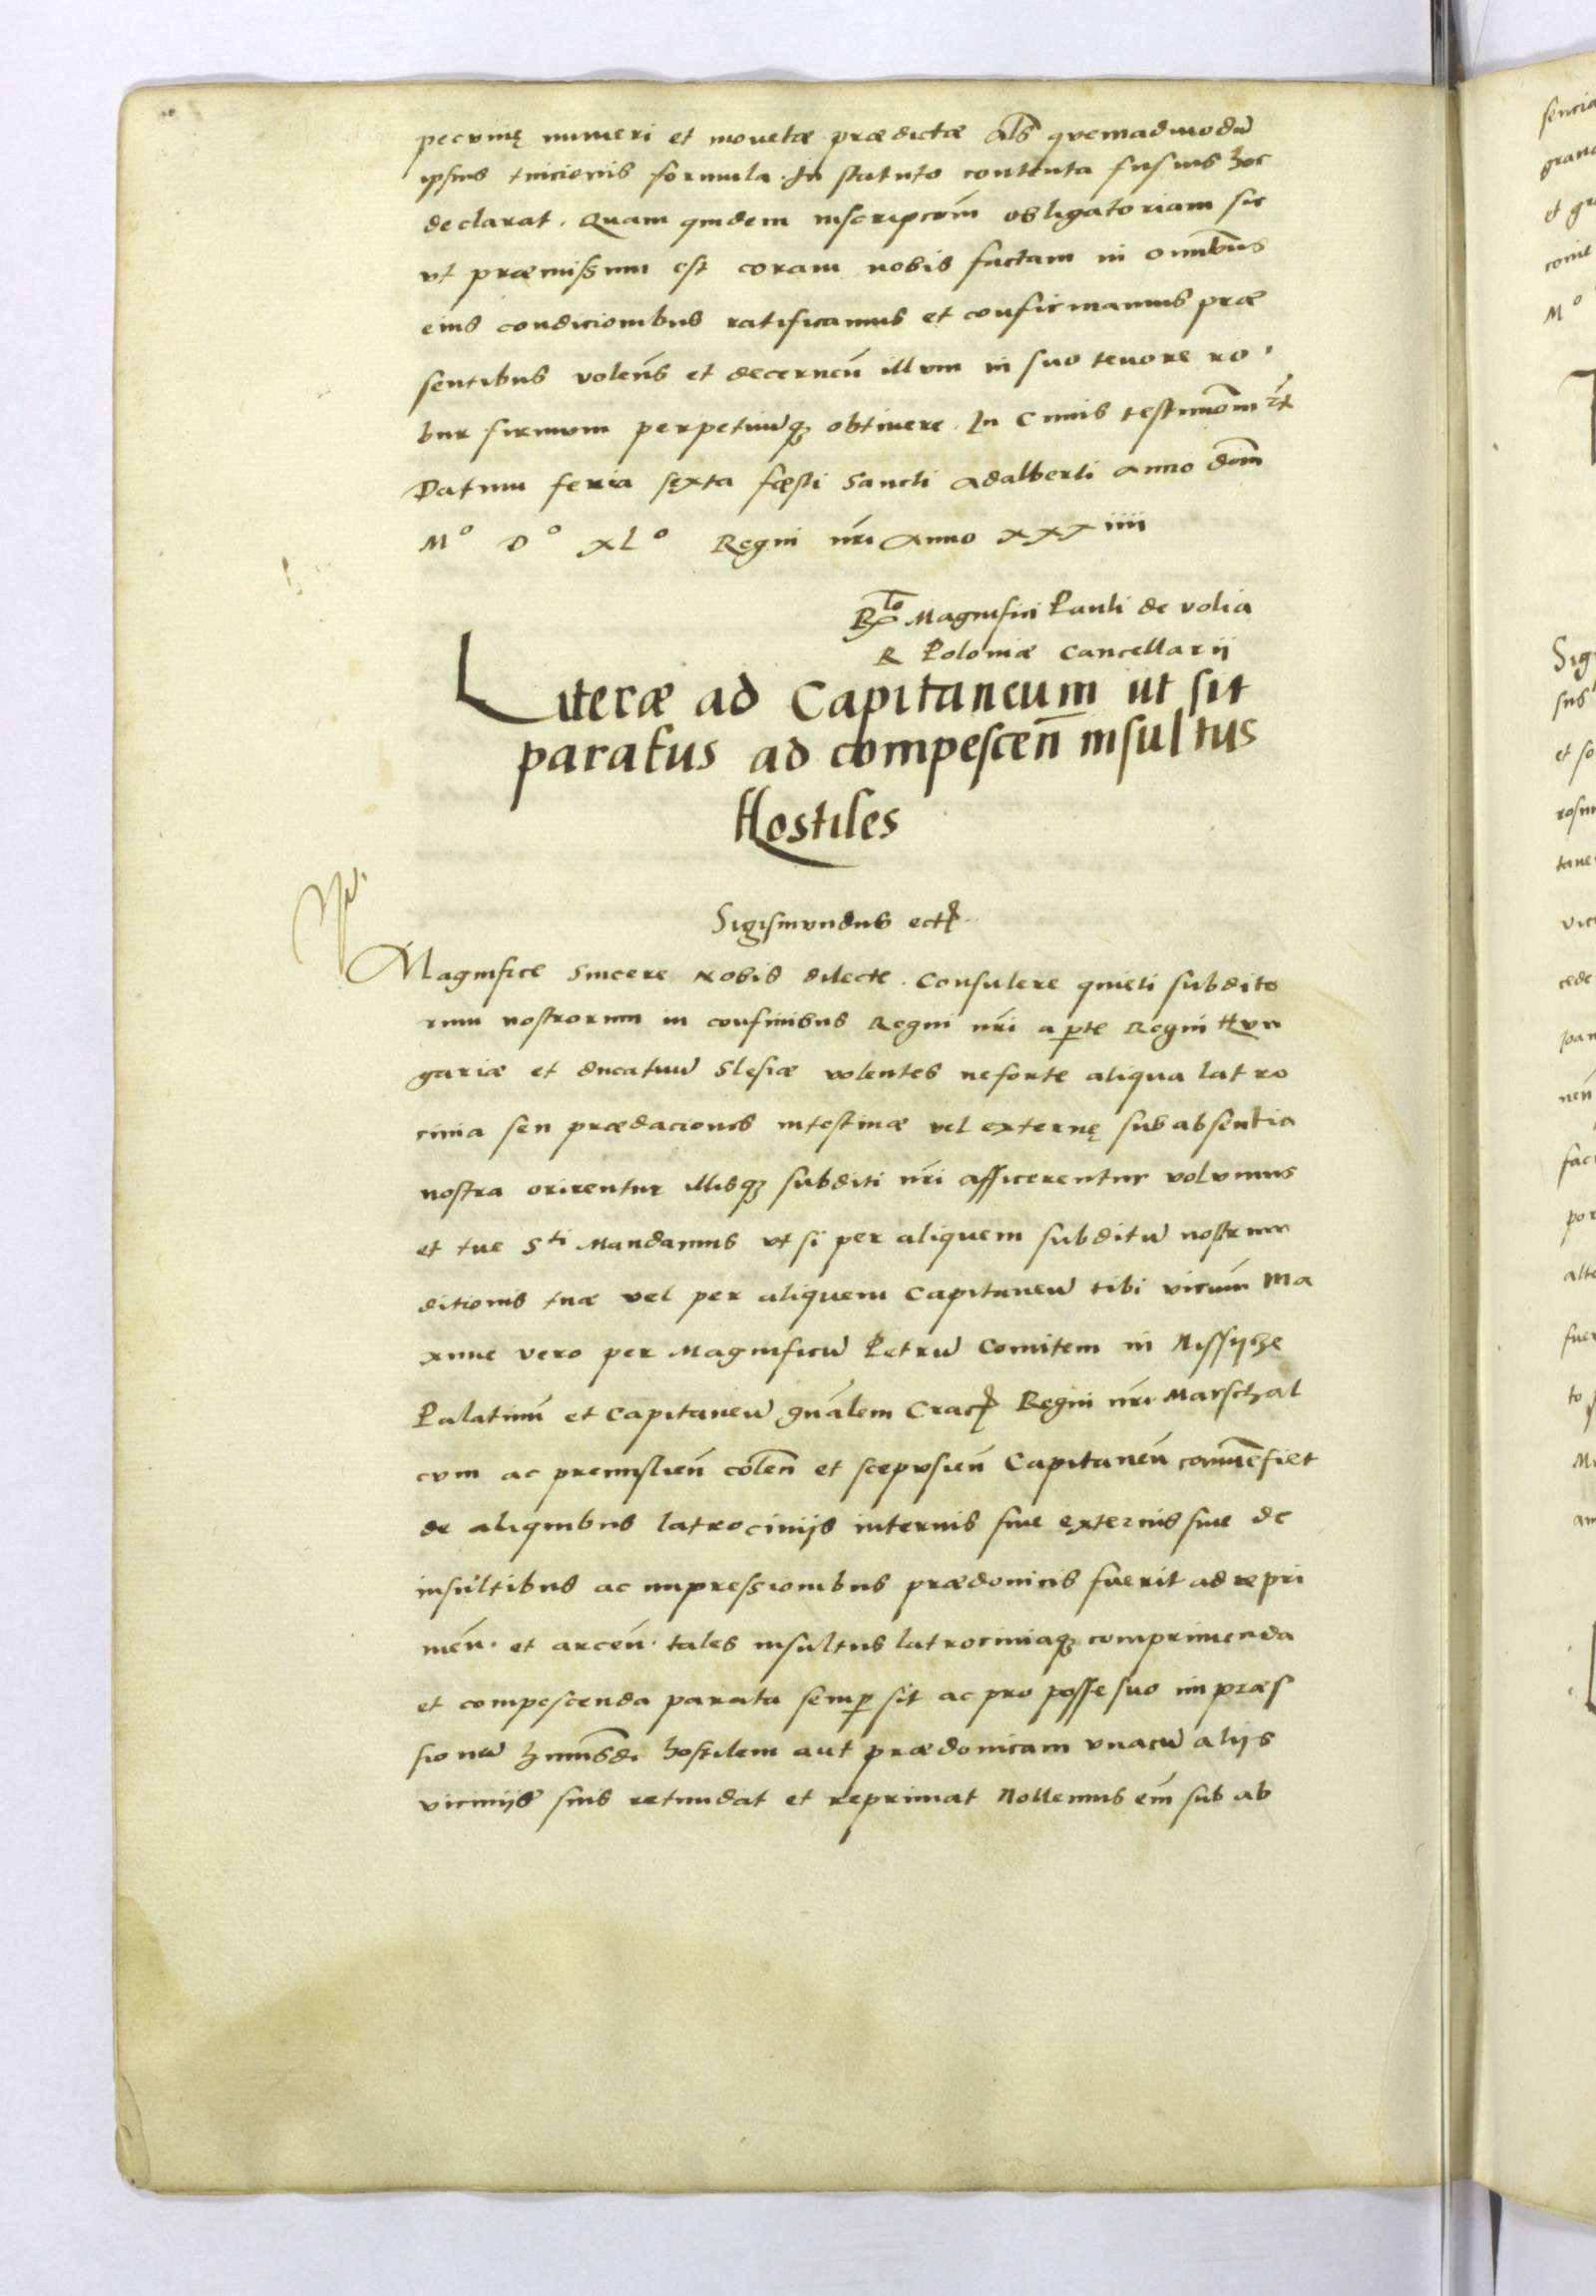 pecunię numeri et monetæ prædictæ Als̃ quemadmodū
ipsius tuicionis formula. In statuto contenta fusius hoc
declarat. Quam quidem inscripcõm obligatoriam sic
ut præmissum est coram nobis factam in omĩbus
eius condicionibus ratificamus et confirmamus præ
sentibus volen̄s et decernen̄ illum in suo tenore ro
bur firmum perpetuūq; obtinere. In Cuius testimõm
Datum feria sexta fęsti Sancti Adalberti Anno dom̃
Mº Dº XLº Regni nr̃i Anno xxxiiii
Rlo Magnifici Pauli de volia
R Poloniæ Cancellarij
Literæ ad Capitaneum ut sit
paratus ad compescen̄ insultus
Hostiles
Sigismundus ect
Magnifice Sincere Nobis dilecte. Consulere quieti subdito
rum nostrorum in confinibus Regni nr̃i a pte Regni Hun
gariæ et ducatuū Slesiæ volentes ne forte aliqua latro
cinia seu prædaciones intestinæ vel externę sub absentia
nostra orirentur illisq; subditi nr̃i afficerentur volumus
et tue Sti Mandamus ut si per aliquem subditū nostrum
ditionis tuæ vel per aliquem Capitaneū tibi vicinū Ma
xime vero per Magnificū Petrū Comitem in
Palatinū et Capitaneū gnãlem Crac Regni nr̃i Marschal
cum ac premislien̄ colen̄ et scepusien̄ Capitaneū
de aliquibus latrocinijs internis sive externis sive de
insultibus ac impressionibus prædonicis fuerit ad repri
men̄. et arcen̄. tales insultus latrociniaq; comprimenda
et compescenda parata semp sit ac pro posse suo impræs
sionē huiusdi hostilem aut prædonicam unacū alijs
vicinijs suis retundat et reprimat Nollemus em̄ sub ab